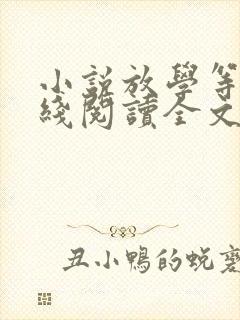 小説放學等
綫閱讀全文
丑小鴨的蛻